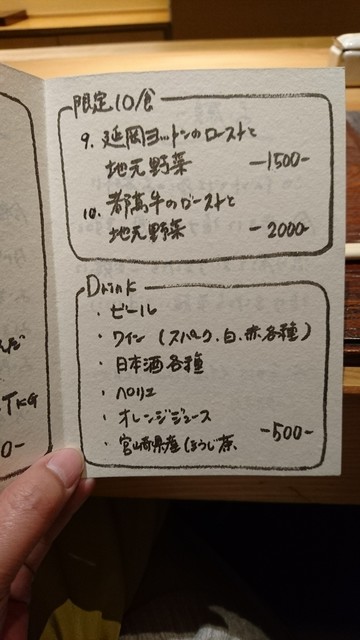 限定10食
9. 延岡ヨットンのローストと
地元野菜 -1500-
10. 都萬牛のローストと
地元野菜 -2000-
Drink
・ビール
・ワイン (スパーク、白、赤各種)
・日本酒各種
・ペリエ
・オレンジジュース
・宮崎県産ほうじ茶、 -500-
TKG
0-